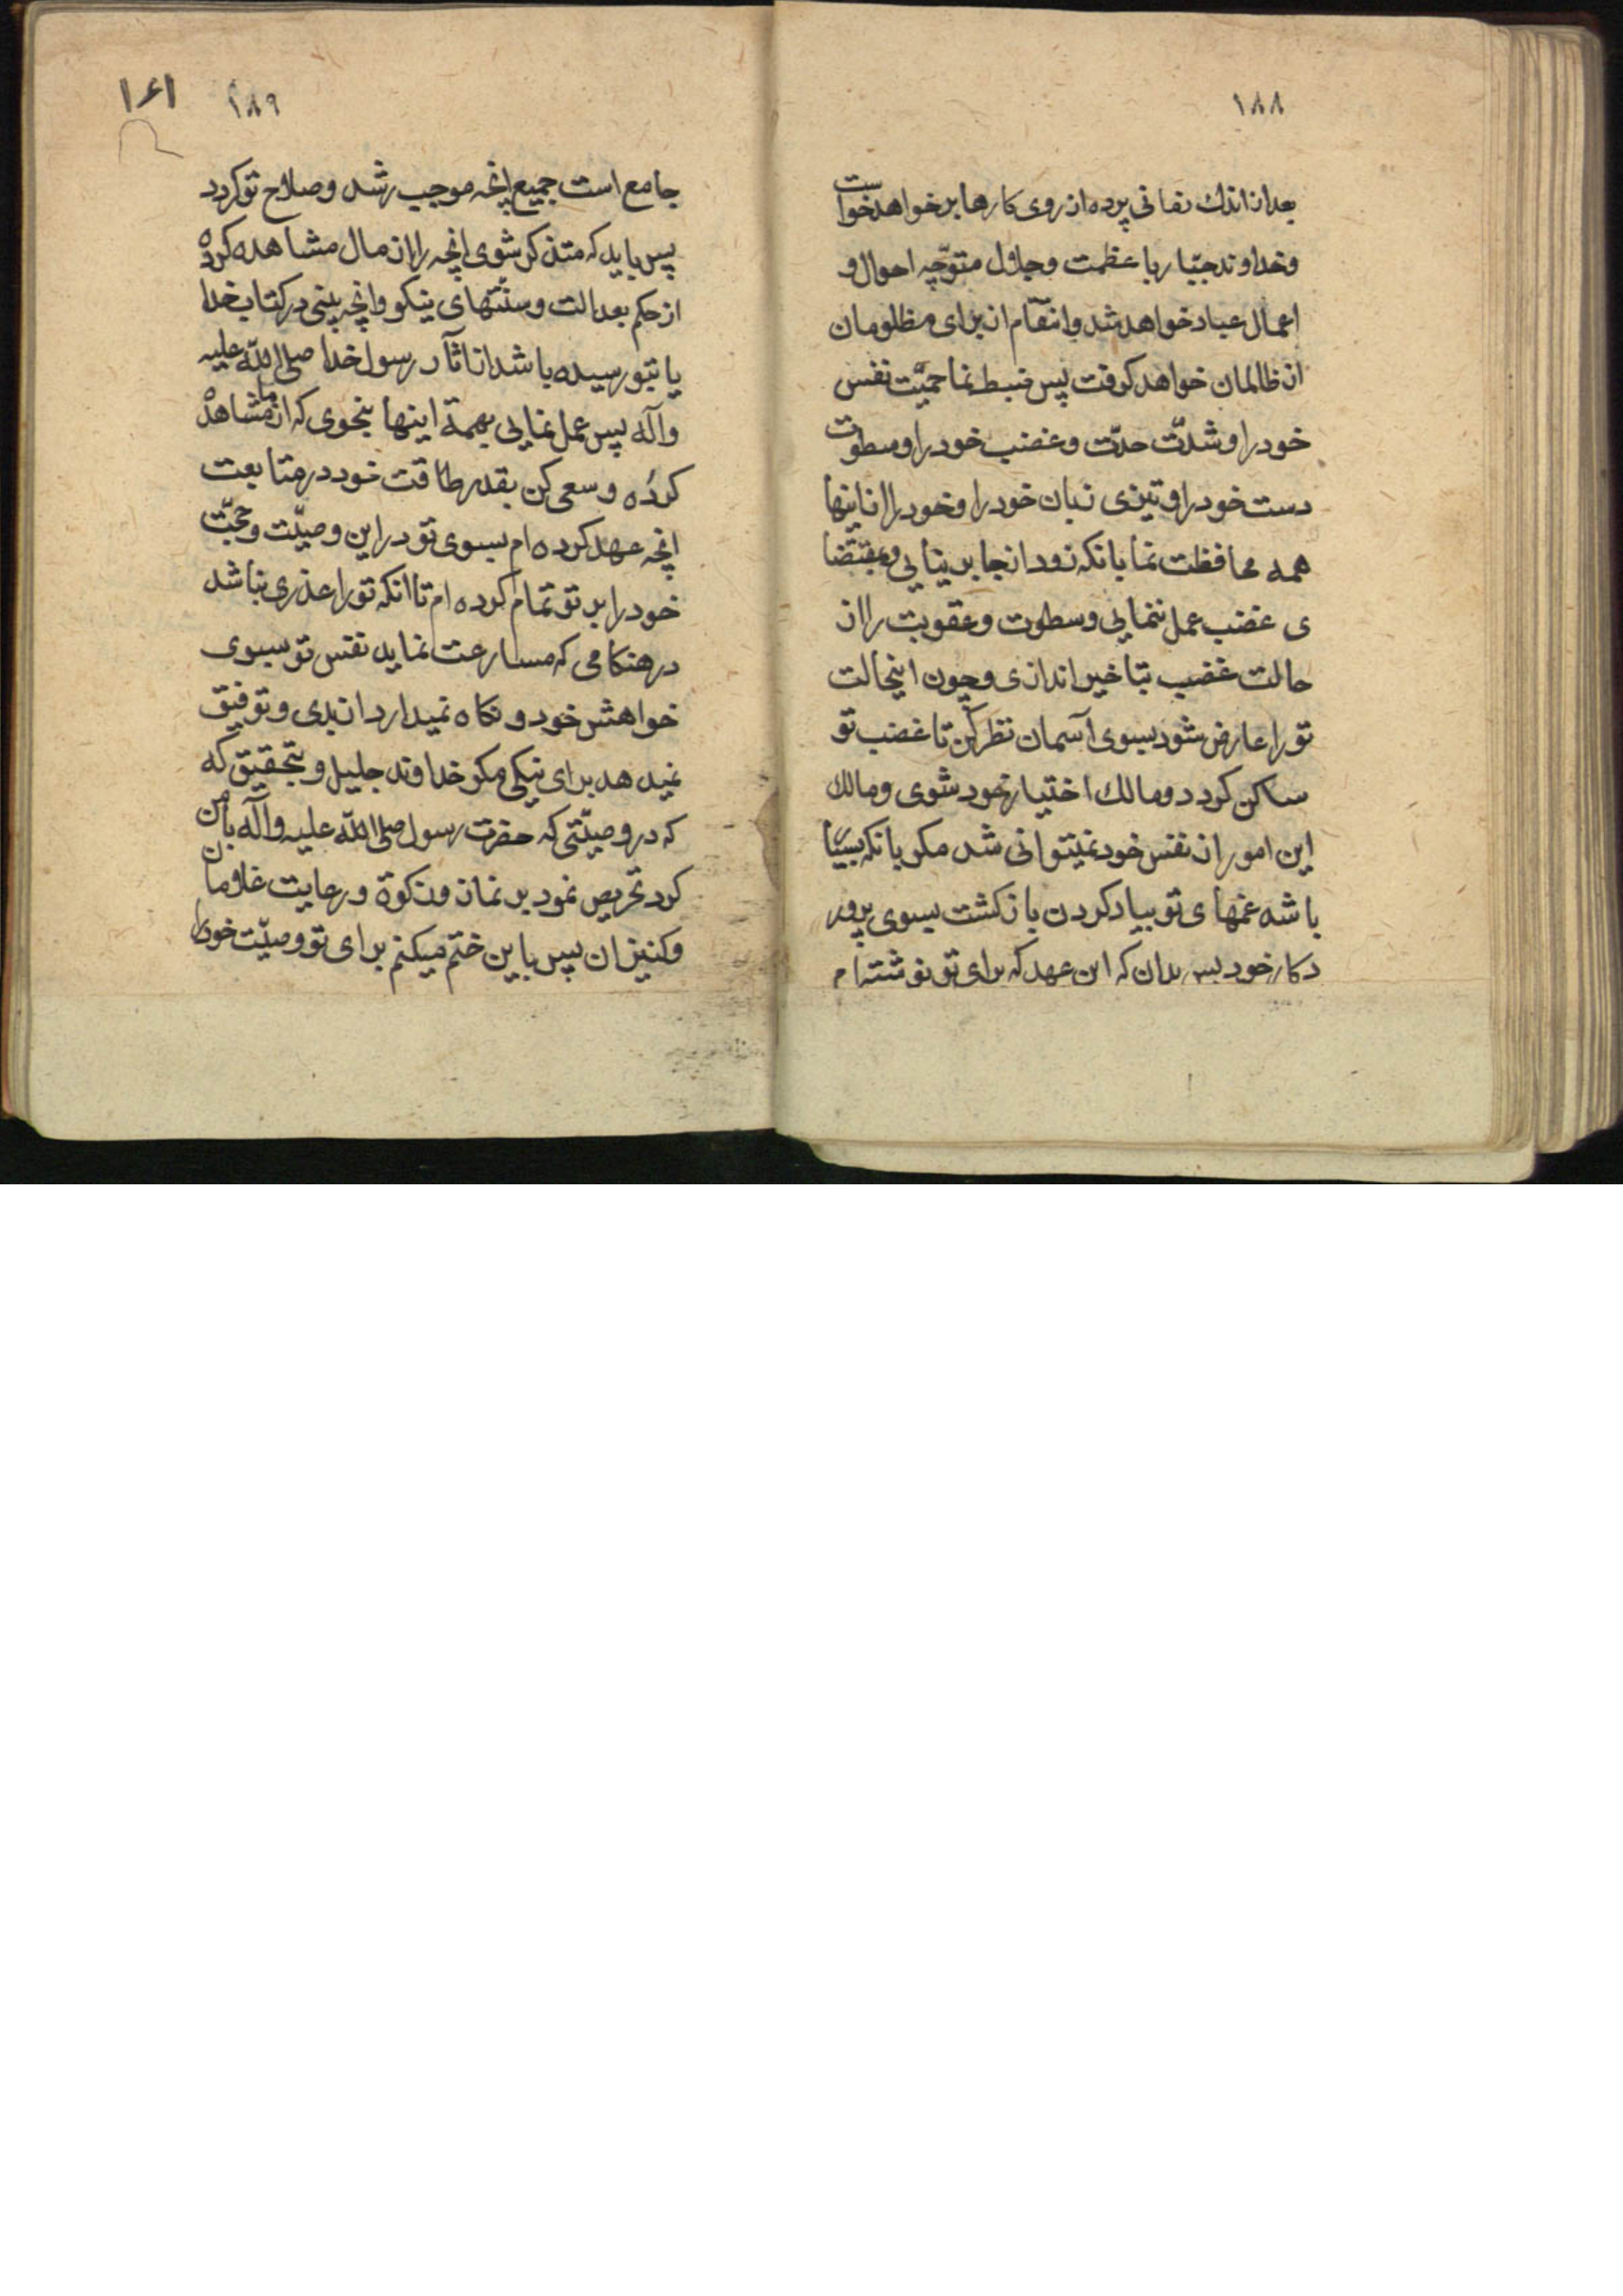 ۱۸۸
بعد از اندك زمانی پرده از روی کارها بر خواهد خواست
و خداوند جبّار با عظمت و جلال متوجّه احوال و
اعمال عباد خواهد شد و انتقام از برای مظلومان
از ظالمان خواهد کرفت پس ضبط نما حمیّت نفس
خود را و شدّت حدّت و غضب خود را و سطوت
دست خود را و تیزی زبان خود را و خود را از اینها
همه محافظت نما بانکه زود از جا بر نیایی و بمقتضا
ی غضب عمل ننمایی و سطوت و عقوبت را از
حالت غضب بتاخیر اندازی و چون اینحالت
تو را عارض شود بسوی آسمان نظر کن تا غضب تو
ساکن کردد و مالك اختیار خود شوی و مالك
این امور از نفس خود نمیتوانی شد مکر بانکه بسیار
باشد غمهای تو بیاد کردن باز کشت بسوی پرور
دکار خود پس بدان که این عهد که برای تو نوشته‌ام
۱۶۱
۱۸۹
جامع است جمیع انچه موجب رشد و صلاح تو کردد
پس باید که متذکر شوی انچه را از مال مشاهده کرده
از حکم بعدالت و سنّتهای نیکو و انچه بینی در کتاب خدا
یا بتو رسیده باشد از اثآر رسول خدا صلی اللّه علیه
و آله پس عمل نمایی بهمهٔ اینها بنحوی که از ما مشاهده
کرده و سعی کن بقدر طاقت خود در متابعت
انچه عهد کرده ام بسوی تو در این وصیّت و حجّت
خود را بر تو تمام کرده ام تا انکه تو را عذری نباشد
در هنکامی که مسارعت نماید نفس تو بسوی
خواهش خود و نکاه نمیدارد از بدی و توفیق
نمیدهد برای نیکی مکر خداوند جلیل و بتحقیق که
که در وصیّتی که حضرت رسول صلی اللّه علیه و آله با من
کرد تحریص نمود بر نماز و زکوة و رعایت غلامان
و کنیزان پس باین ختم میکنم برای تو وصیّت خود را